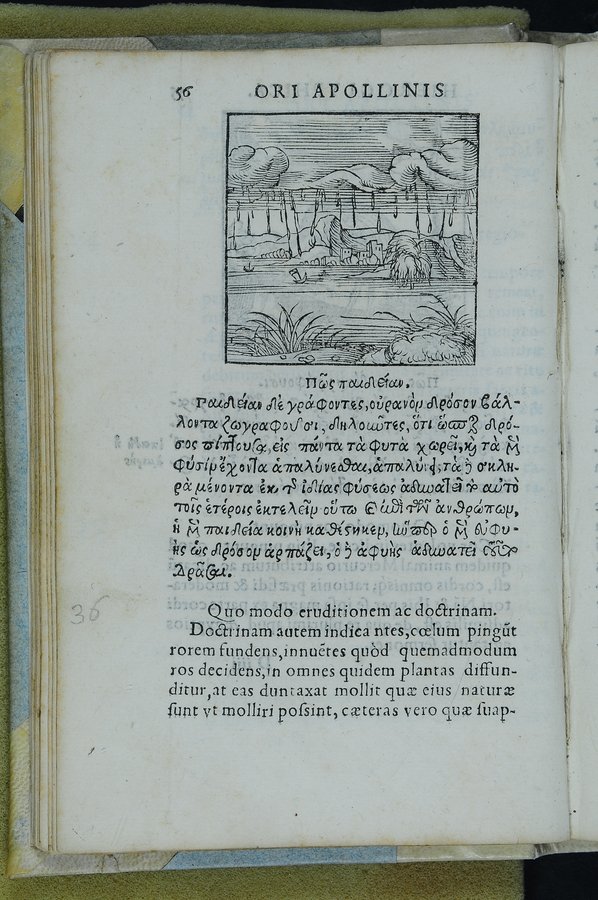 56 ORI APOLLINIS
Πῶς παιδείαν.
Παιδείαν δὲ γράφοντες, οὐρανὸν δρόσον βάλ-
λοντα ζωγραφοῦσι, δηλοῦντες, ὅτι ὥσπερ ἡ δρό-
σος πίπτουσα, εἰς πάντα τὰ φυτὰ χωρεῖ, καὶ τὰ μὲν
φύσιν ἔχοντα ἁπαλύνεσθαι, ἁπαλύνει, τὰ δὲ σκλη-
ρὰ μένοντα ἐκ τῆς ἰδίας φύσεως ἀδυνατεῖ τὸ αὐτὸ
τοῖς ἑτέροις ἐκτελεῖν οὕτω καὶ ἐπὶ τῶν ἀνθρώπων,
ἡ μὲν παιδεία κοινὴ καθέστηκεν, ἣν ὥσπερ ὁ μὲν εὐφυ-
ὴς ὡς δρόσον ἁρπάζει, ὁ δὲ ἀφυὴς ἀδυνατεῖ τοῦτο
δρᾶσαι.
36
Quo modo eruditionem ac doctrinam.
Doctrinam autem indica ntes, cœlum pingũt
rorem fundens, innuẽtes quòd quemadmodum
ros decidens, in omnes quidem plantas diffun-
ditur, at eas duntaxat mollit quæ eius naturæ
sunt vt molliri possint, cæteras vero quæ suap-